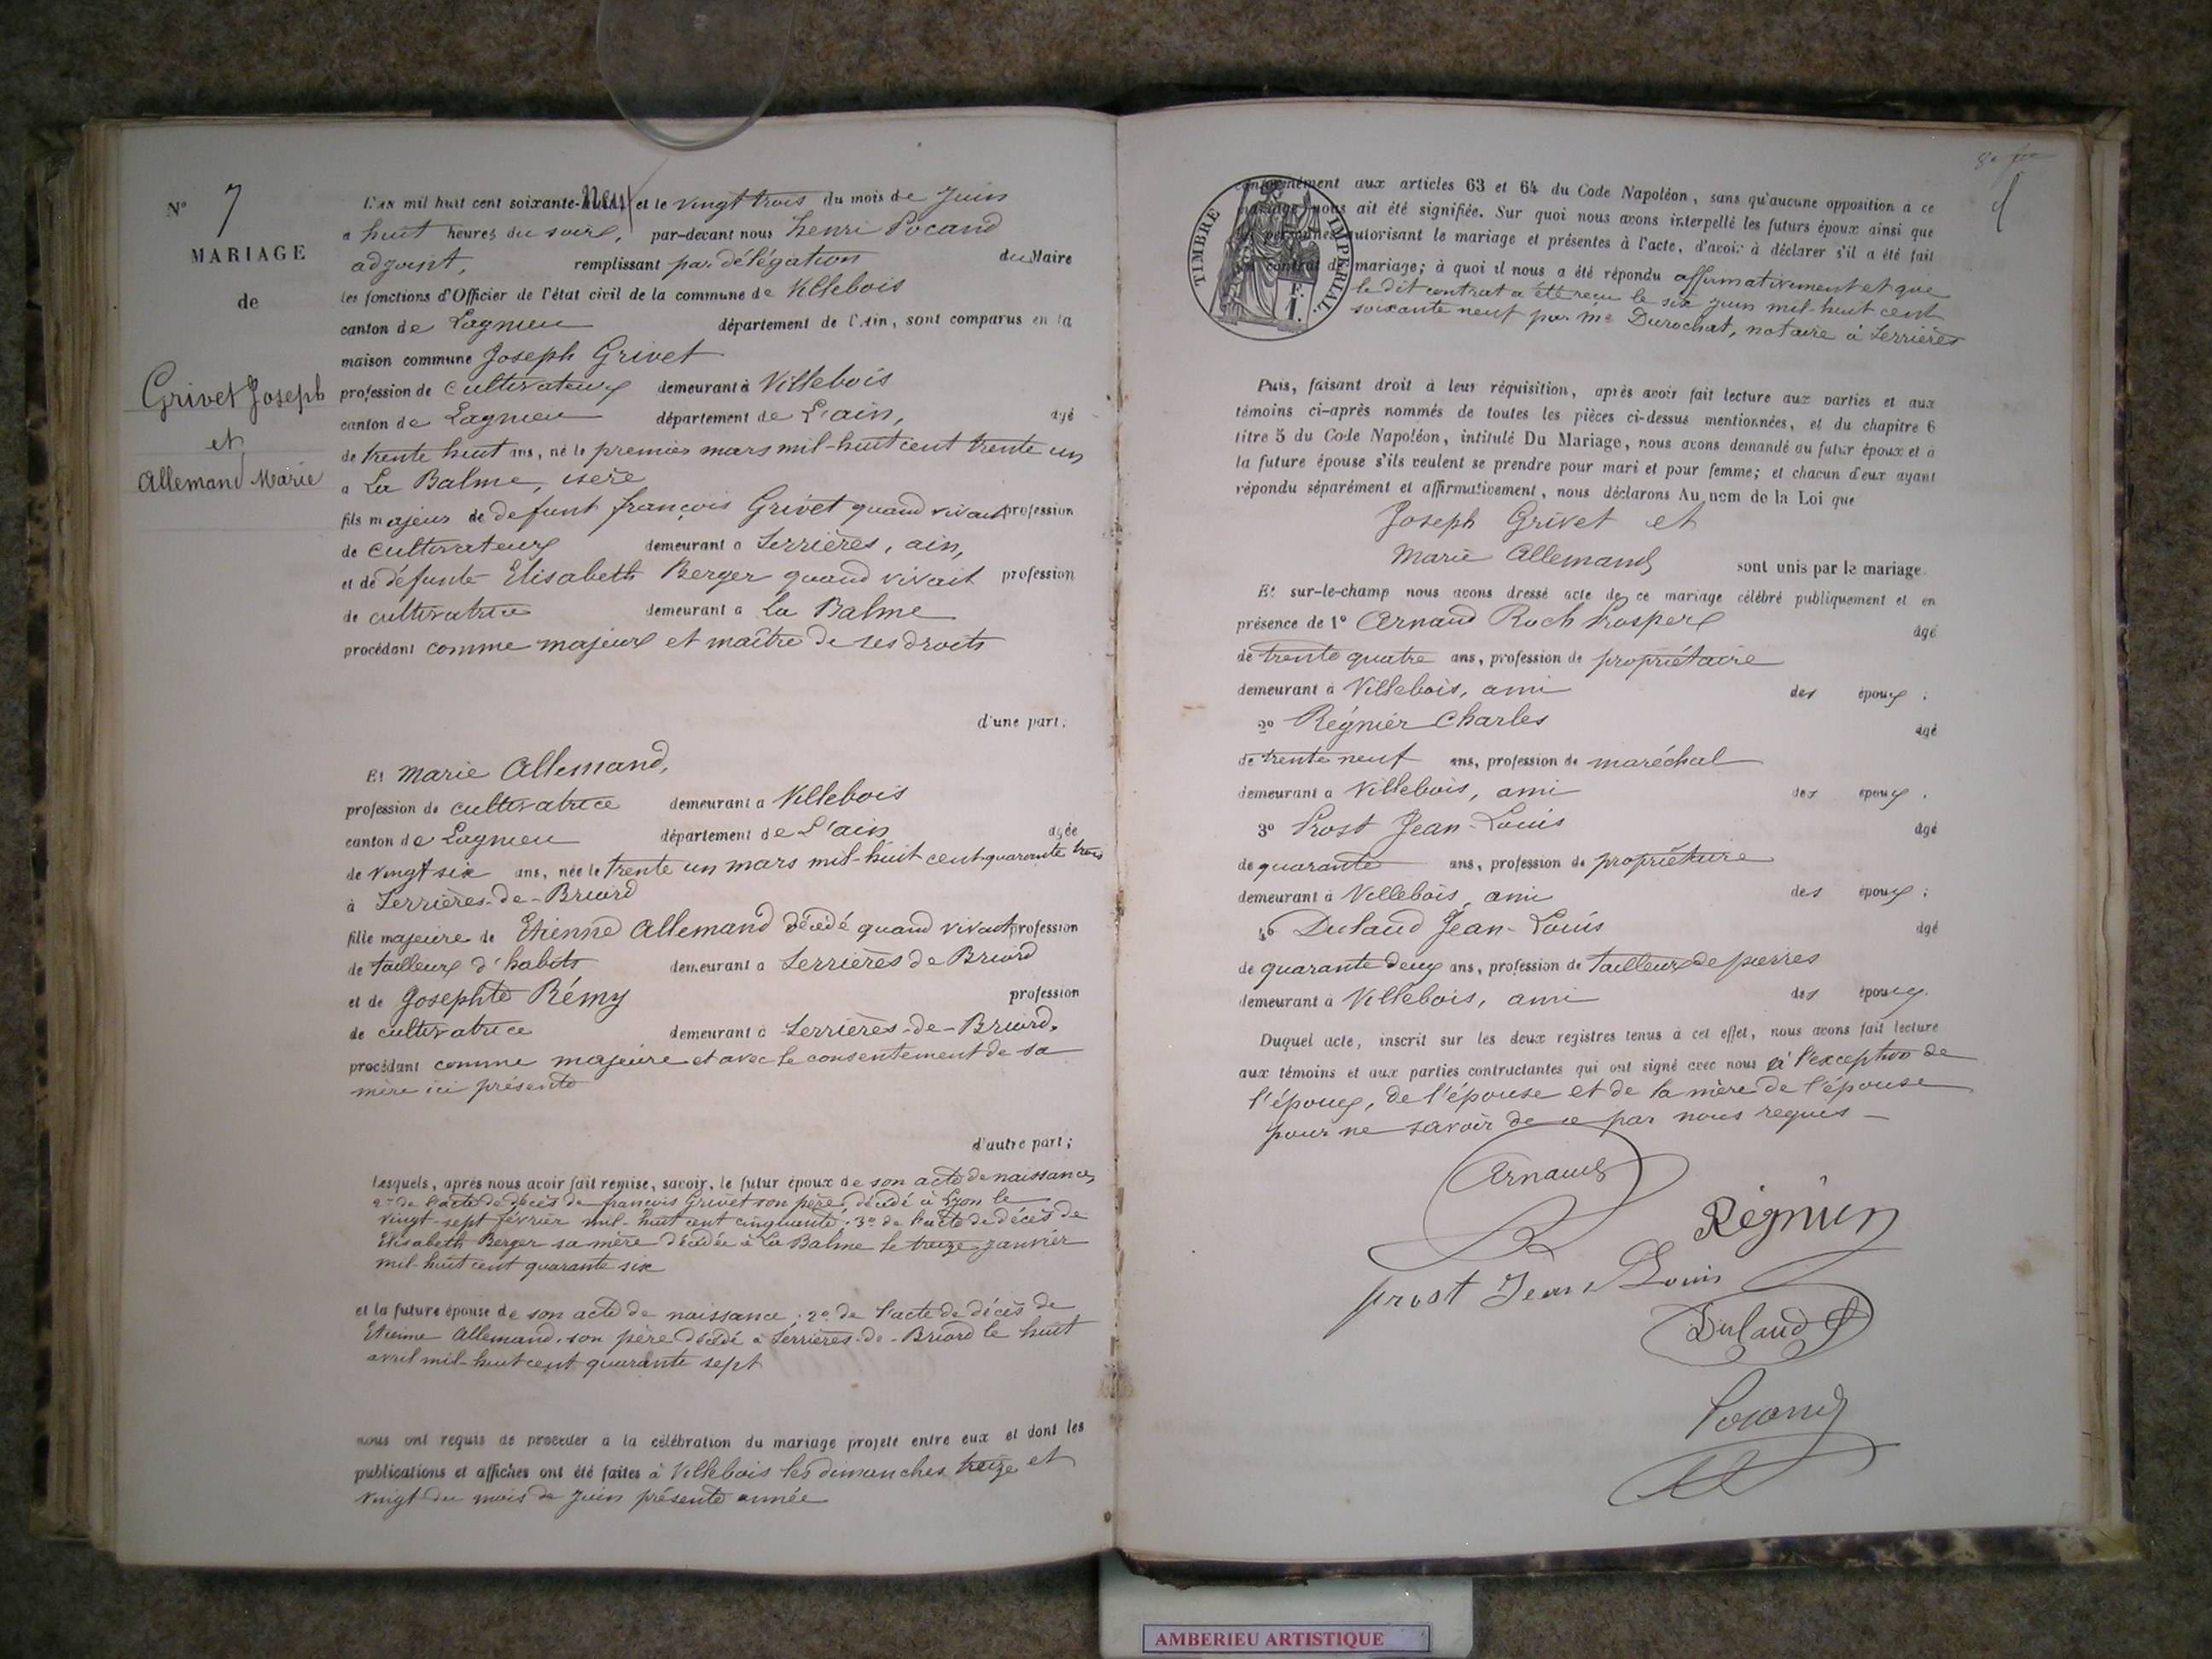 N° 7
MARIAGE
de
Grivet Joseph
et
Allemand Marie
L'an mil huit cent soixante-neuf et le vingt trois du mois de Juin
a huit heures du soir, par-devant nous henri Pocand
adjoint, remplissant par délégation du Maire
les fonctions d'Officier de l'état civil de la commune de Villebois
canton de Lagnieu département de l'Ain, sont comparus en la
maison commune Joseph Grivet
profession de cultivateur demeurant à Villebois
canton de Lagnieu département de L'ain, agé
de trente huit ans, né le premier mars mil-huit cent trente un
a La Balme, isère
fils majeur de defunt françois Grivet quand vivait profession
de cultivateur demeurant a Serrières, ain,
et de défunte Elisabeth Berger quand vivait profession
de cultivatrice demeurant a La Balme
procédant comme majeur et maître de ses droits
d'une part;
Et Marie Allemand,
profession de cultivatrice demeurant a Villebois
canton de Lagnieu département de L'ain agée
de vingt six ans, née le trente un mars mil-huit cent quarante trois
à Serrières-de-Briord
fille majeure de Etienne Allemand décédé quand vivait profession
de tailleur d'habits demeurant a Serrières de Briord
et de Josephte Rémy profession
de cultivatrice demeurant à Serrières-de-Briord,
procédant comme majeure et avec le consentement de sa
mère ici présente
d'autre part;
Lesquels, après nous avoir fait remise, savoir, le futur époux de son acte de naissance,
2° de l'acte de décès de françois Grivet son père, décédé à Lyon le
vingt-sept février mil-huit cent cinquante; 3° de l'acte de décès de
Elisabeth Berger sa mère décédée à La Balme le treize janvier
mil-huit cent quarante six
et la future épouse de son acte de naissance; 2° de l'acte de décès de
Etienne Allemand, son père décédé à Serrières-de-Briord le huit
avril mil-huit cent quarante sept
nous ont requis de procéder a la célébration du mariage projeté entre eux et dont les
publications et affiches ont été faites à Villebois les dimanches treize et
vingt du mois de Juin présente année
TIMBRE IMPERIAL
1 F.
conformément aux articles 63 et 64 du Code Napoléon, sans qu'aucune opposition a ce
mariage nous ait été signifiée. Sur quoi nous avons interpellé les futurs époux ainsi que
les personnes autorisant le mariage et présentes à l'acte, d'avoir à déclarer s'il a été fait
un contrat de mariage; à quoi il nous a été répondu affirmativement et que
le dit contrat a été reçu le six juin mil-huit cent
soixante neuf par Me Durochat, notaire à Serrières
Puis, faisant droit à leur réquisition, après avoir fait lecture aux parties et aux
témoins ci-après nommés de toutes les pièces ci-dessus mentionnées, et du chapitre 6
titre 5 du Code Napoléon, intitulé Du Mariage, nous avons demandé au futur époux et à
la future épouse s'ils veulent se prendre pour mari et pour femme; et chacun d'eux ayant
répondu séparément et affirmativement, nous déclarons Au nom de la Loi que
Joseph Grivet et
Marie Allemand sont unis par le mariage.
Et sur-le-champ nous avons dressé acte de ce mariage célébré publiquement et en
présence de 1° Arnaud Roch Prosper âgé
de trente quatre ans, profession de propriétaire
demeurant à Villebois, ami des époux;
2° Régnier Charles âgé
de trente neuf ans, profession de maréchal
demeurant a Villebois, ami des époux.
3° Prost Jean-Louis âgé
de quarante ans, profession de propriétaire
demeurant à Villebois, ami des époux;
4° Dulaud Jean-Louis âgé
de quarante deux ans, profession de tailleur de pierres
demeurant à Villebois, ami des époux.
Duquel acte, inscrit sur les deux registres tenus à cet effet, nous avons fait lecture
aux témoins et aux parties contractantes qui ont signé avec nous à l'exception de
l'époux, de l'épouse et de la mère de l'épouse
pour ne savoir de ce par nous requis —
Arnaud
Régnier
prost Jean Louis
Dulaud
Pocand
AMBERIEU ARTISTIQUE